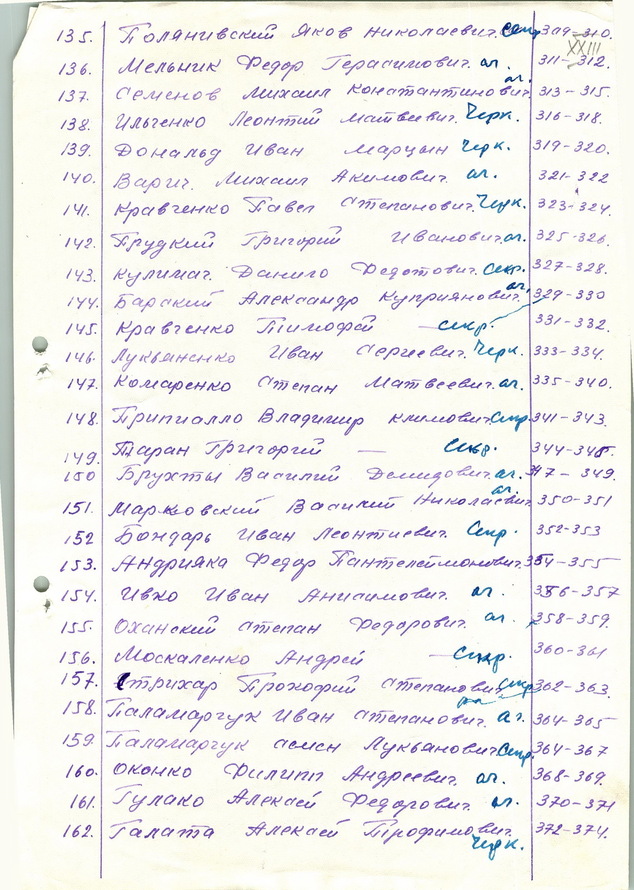 XXIII
135. Полянивский Яков Николаевич. секр 309-310.
136. Мельник Федор Герасимович. ал. 311-312.
137. Семенов Михаил Константинович. ал. 313-315.
138. Ильченко Леонтий Матвеевич. Черк. 316-318.
139. Дональд Иван Марцын Черк. 319-320.
140. Варич. Михаил Акимович. ал. 321-322
141. Кравченко Павел Степанович. Черк. 323-324.
142. Прудкий Григорий Иванович. ал. 325-326.
143. Кулимач. Данило Федотович. Секр. 327-328.
144. Барский Александр Куприянович. ал. 329-330
145. Кравченко Тимофей — секр. 331-332.
146. Лукьяненко Иван Сергиевич. Черк. 333-334.
147. Комаренко Степан Матвеевич. ал. 335-340.
148. Припиалло Владимир Климович. Секр. 341-343.
149. Таран Григорий — Секр. 344-346.
150 Брухты Василий Демидович. ал. 347-349.
151. Марковский Василий Николаевич. ал. 350-351
152 Бондарь Иван Леонтиевич. Секр. 352-353
153. Андрияка Федор Пантелеймонович. 354-355
154. Ивко Иван Анисимович. ал. 356-357
155. Оханский Степан Федорович. ал. 358-359.
156. Москаленко Андрей — Секр. 360-361
157. Стрихар Прокофий Степанович. секр 362-363.
158. Паламарчук Иван Степанович. ал. 364-365
159. Паламарчук Семен Лукьянович. Секр. 364-367
160. Оконко Филипп Андреевич. ал. 368-369.
161. Гулако Алексей Федорович. ал. 370-371
162. Галата Алексей Трофимович. Черк. 372-374.